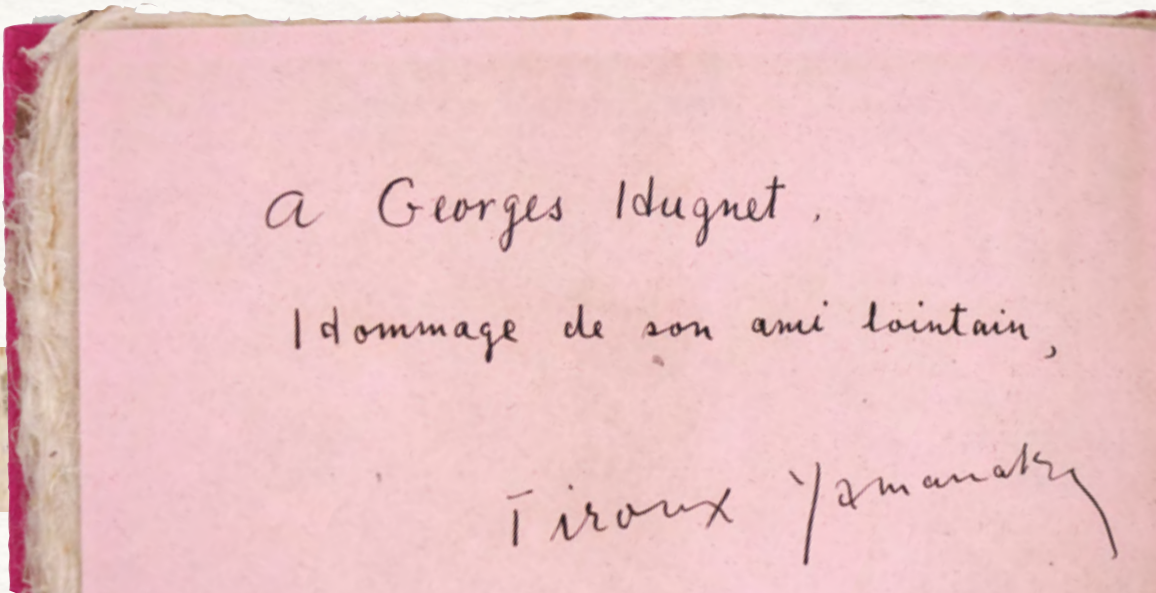 a Georges Hugnet.
Hommage de son ami lointain,
Tiroux Yamanaka